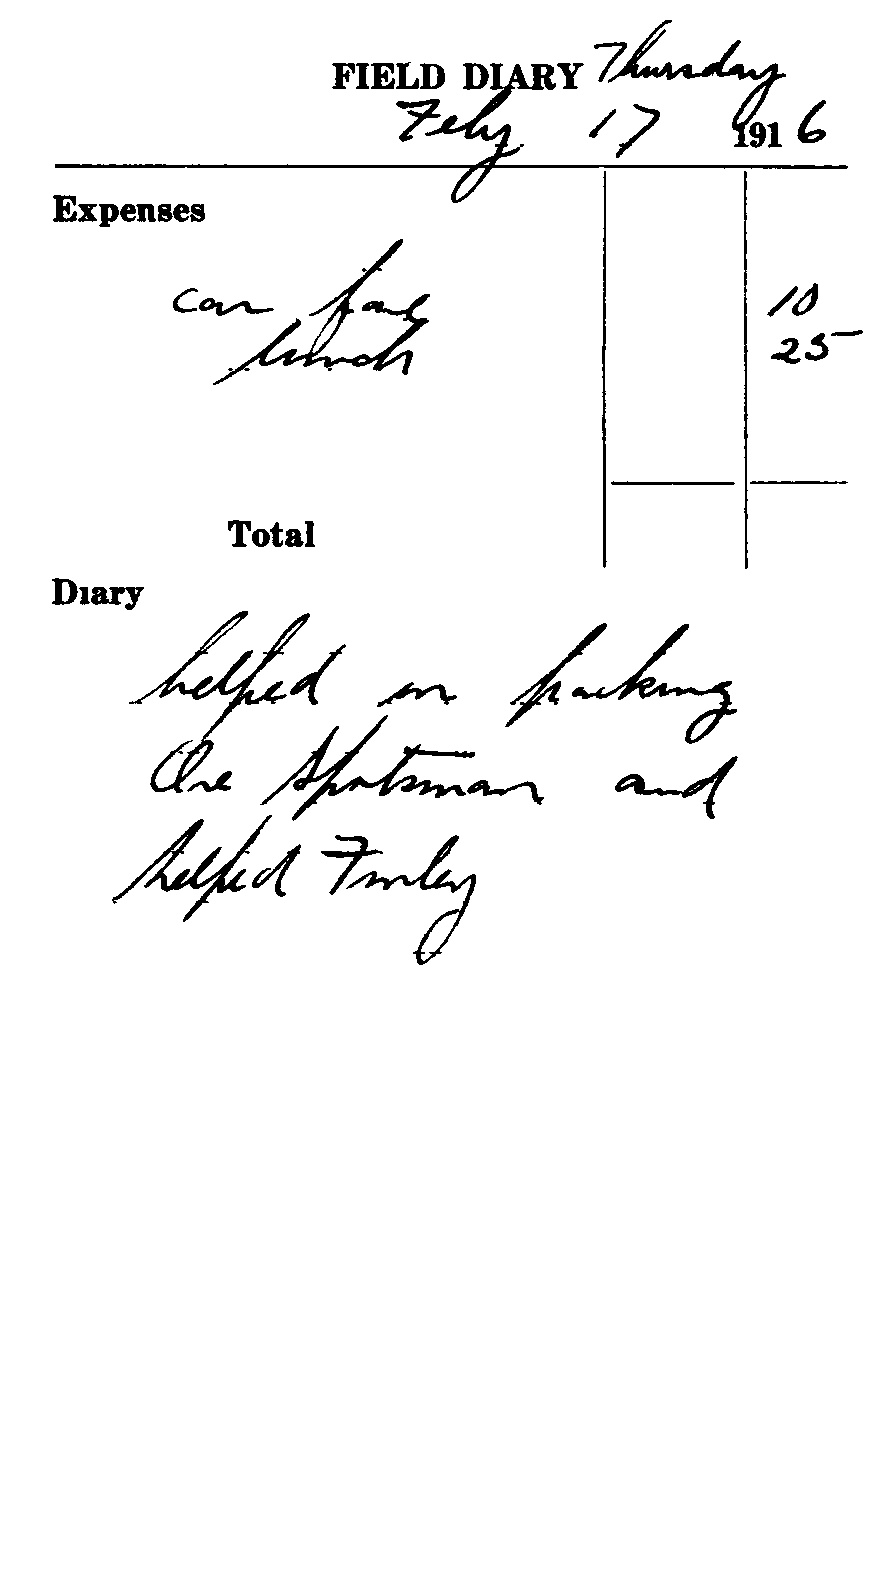 FIELD DIARY Thursday
Feby 17 1916
Expenses
car fare 10
lunch 25
Total
Diary
helped in packing
the Sportsman and
helped Finley